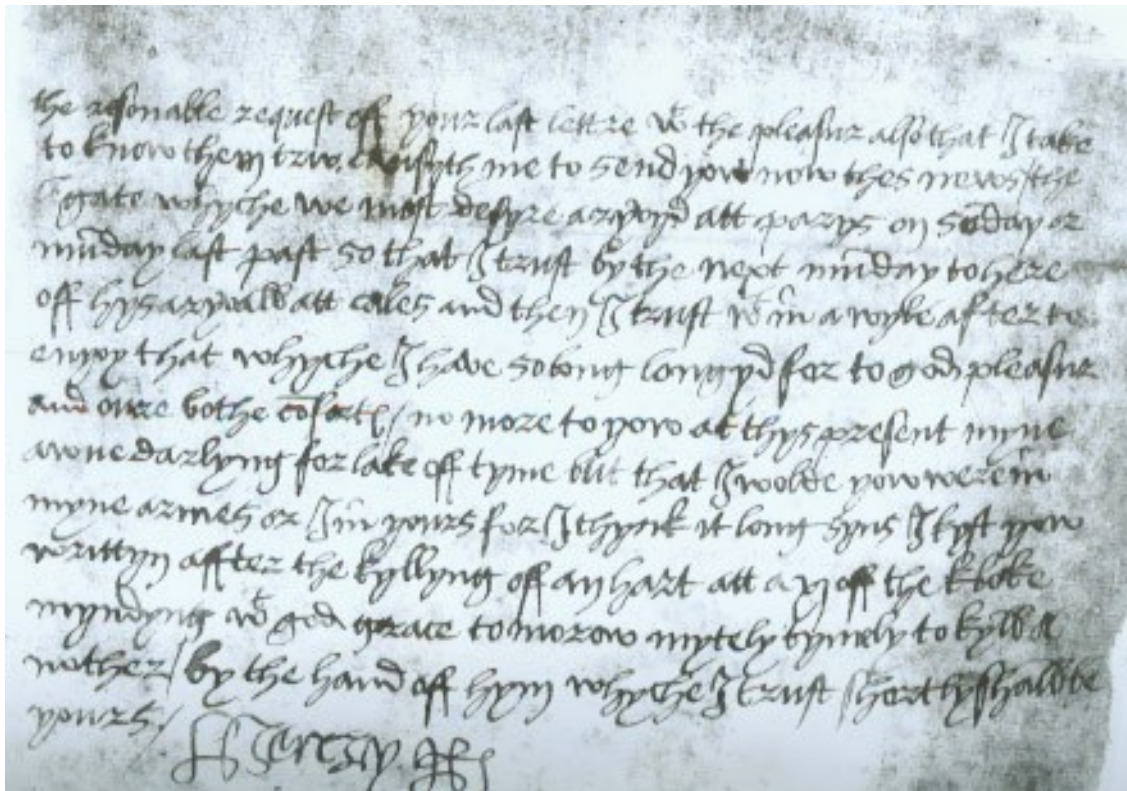 the resonable request off your last lettre wt the pleasur also that I take
to know them trw causyth me to send yow now thes news / the
legate whyche we most desyre aryvyd att parys on soday or
muday last past so that I trust by the next muday to here
off hys aryvall att cales and then I trust wt in a wyle after to
enyoy that whyche I have so long longyd for to god pleasur
and oure bothe cofort / no more to yow at thys present myne
awne darlyng for lake off tyme but that I wolde yow were in
myne armes or I in yours for I thynk it long syns I kyst yow
writtyn affter the kyllyng off an hart att a xj off the kloke
myndyng wt god grace tomorow mytely tymely to kyll a
nother / by the hand off hym whyche I trust shortly shall be
yours /
Henry R